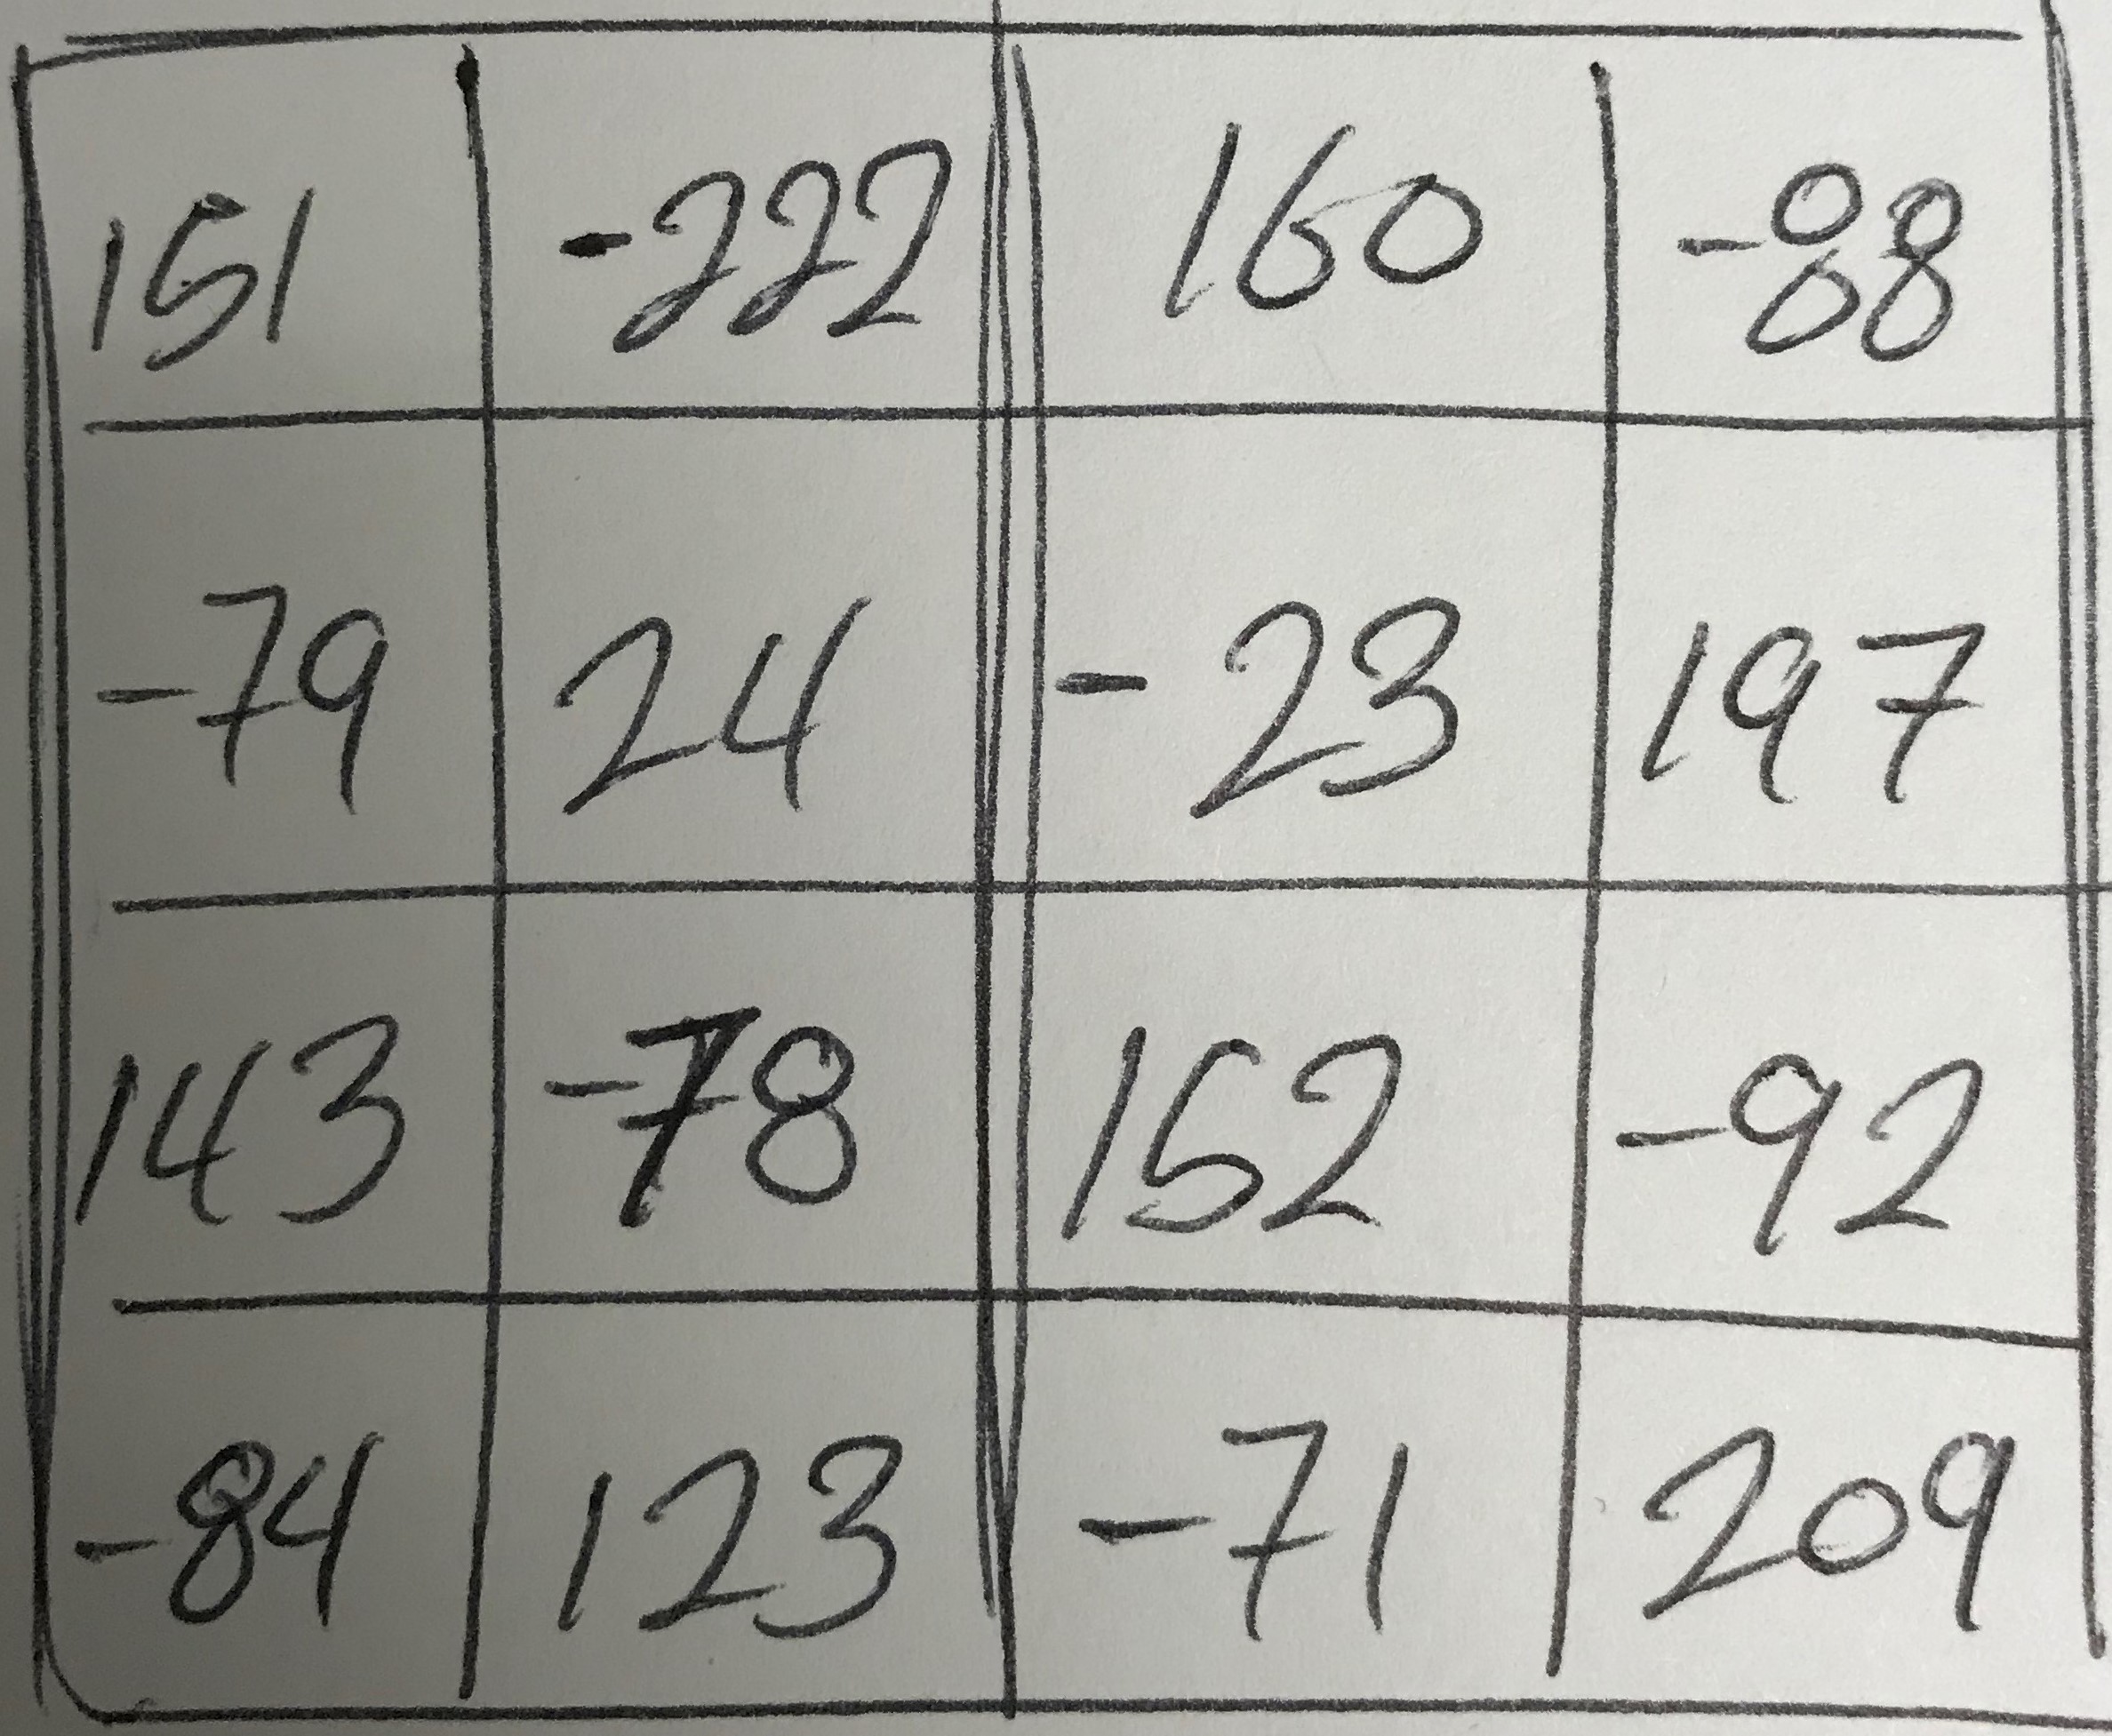 151 -222 160 -88
-79 24 -23 197
143 -78 152 -92
-84 123 -71 209